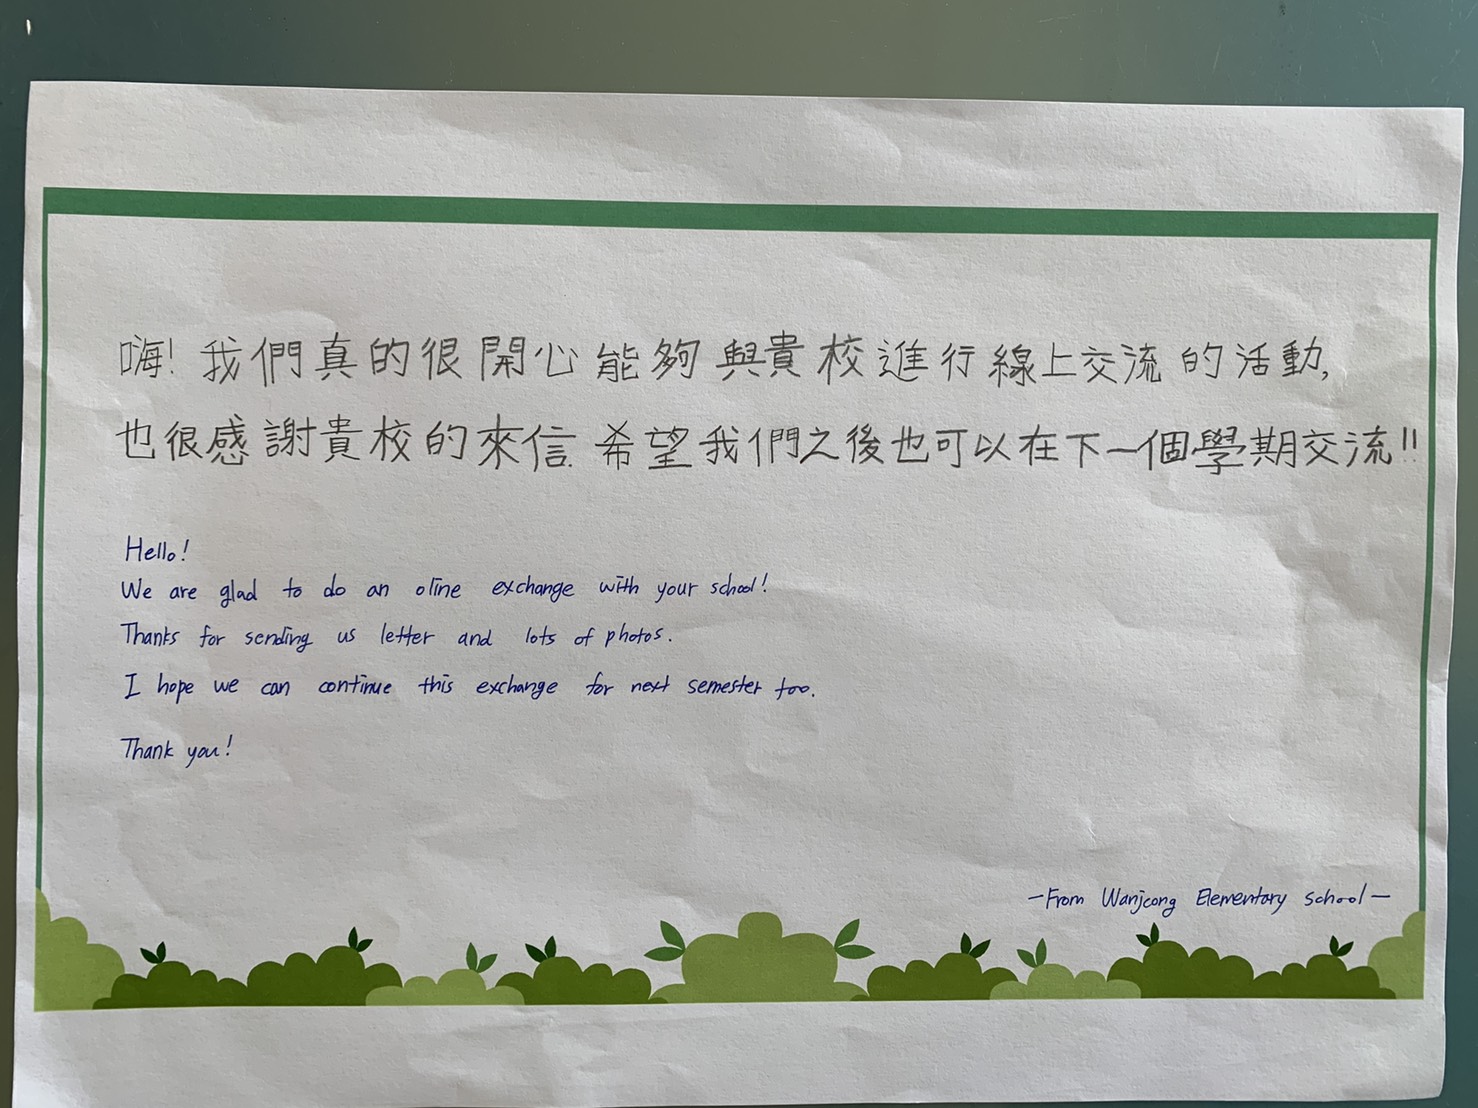 嗨! 我們真的很開心能夠與貴校進行線上交流的活動,
也很感謝貴校的來信. 希望我們之後也可以在下一個學期交流!!
Hello!
We are glad to do an oline exchange with your school!
Thanks for sending us letter and lots of photos.
I hope we can continue this exchange for next semester too.
Thank you!
—From Wanjcong Elementary school—